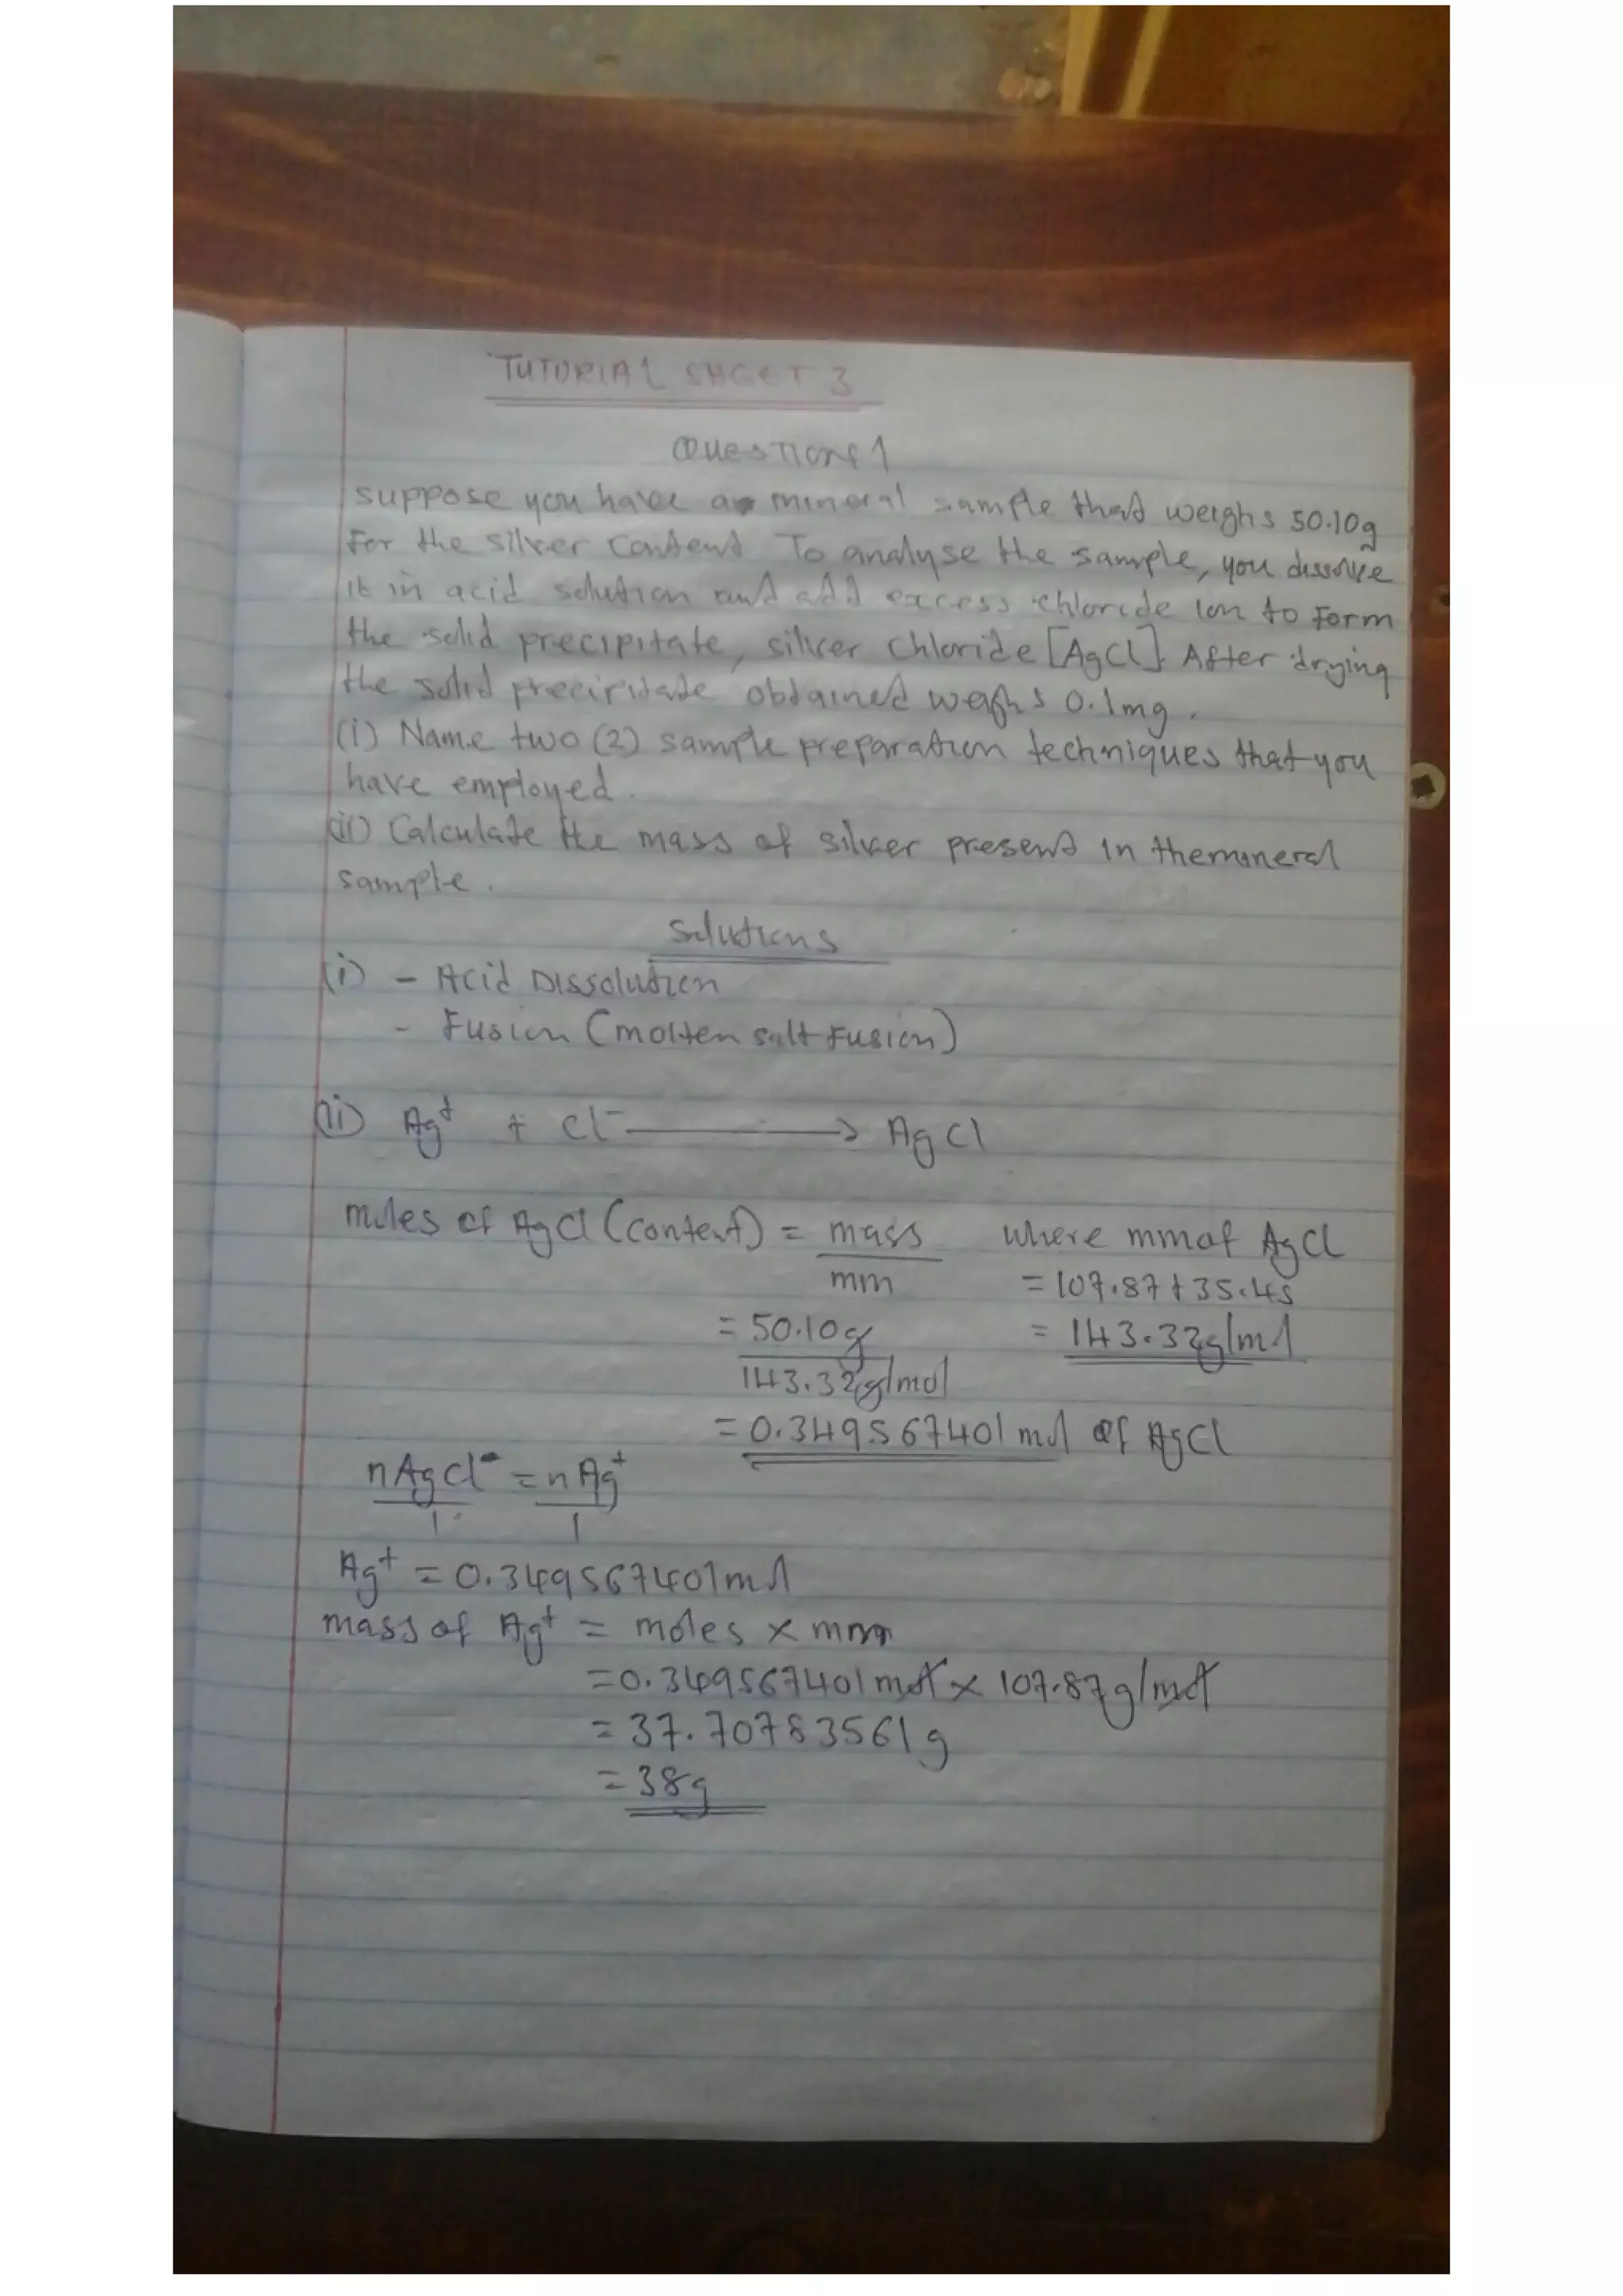 TUTORIAL SHEET 3
QUESTION 1
suppose you have a mineral sample that weighs 50.10g
For the silver content To analyse the sample, you dissolve
it in acid solution and add excess chloride ion to form
the solid precipitate, silver chloride [AgCl]. After drying
the solid precipitate obtained weighs 0.1mg.
(i) Name two (2) sample preparation techniques that you
have employed.
(ii) Calculate the mass of silver present in the mineral
sample.
Solutions
(i) - Acid Dissolution
- Fusion (molten salt fusion)
(ii) Ag⁺ + Cl⁻ → AgCl
moles of AgCl (content) = mass where mm of AgCl
mm = 107.87 + 35.45
= 50.10g = 143.32g/mol
143.32g/mol
= 0.349567401 mol of AgCl
nAgCl = nAg⁺
1 1
Ag⁺ = 0.349567401 mol
mass of Ag⁺ = moles × mm
= 0.349567401 mol × 107.87g/mol
= 37.70783561g
= 38g